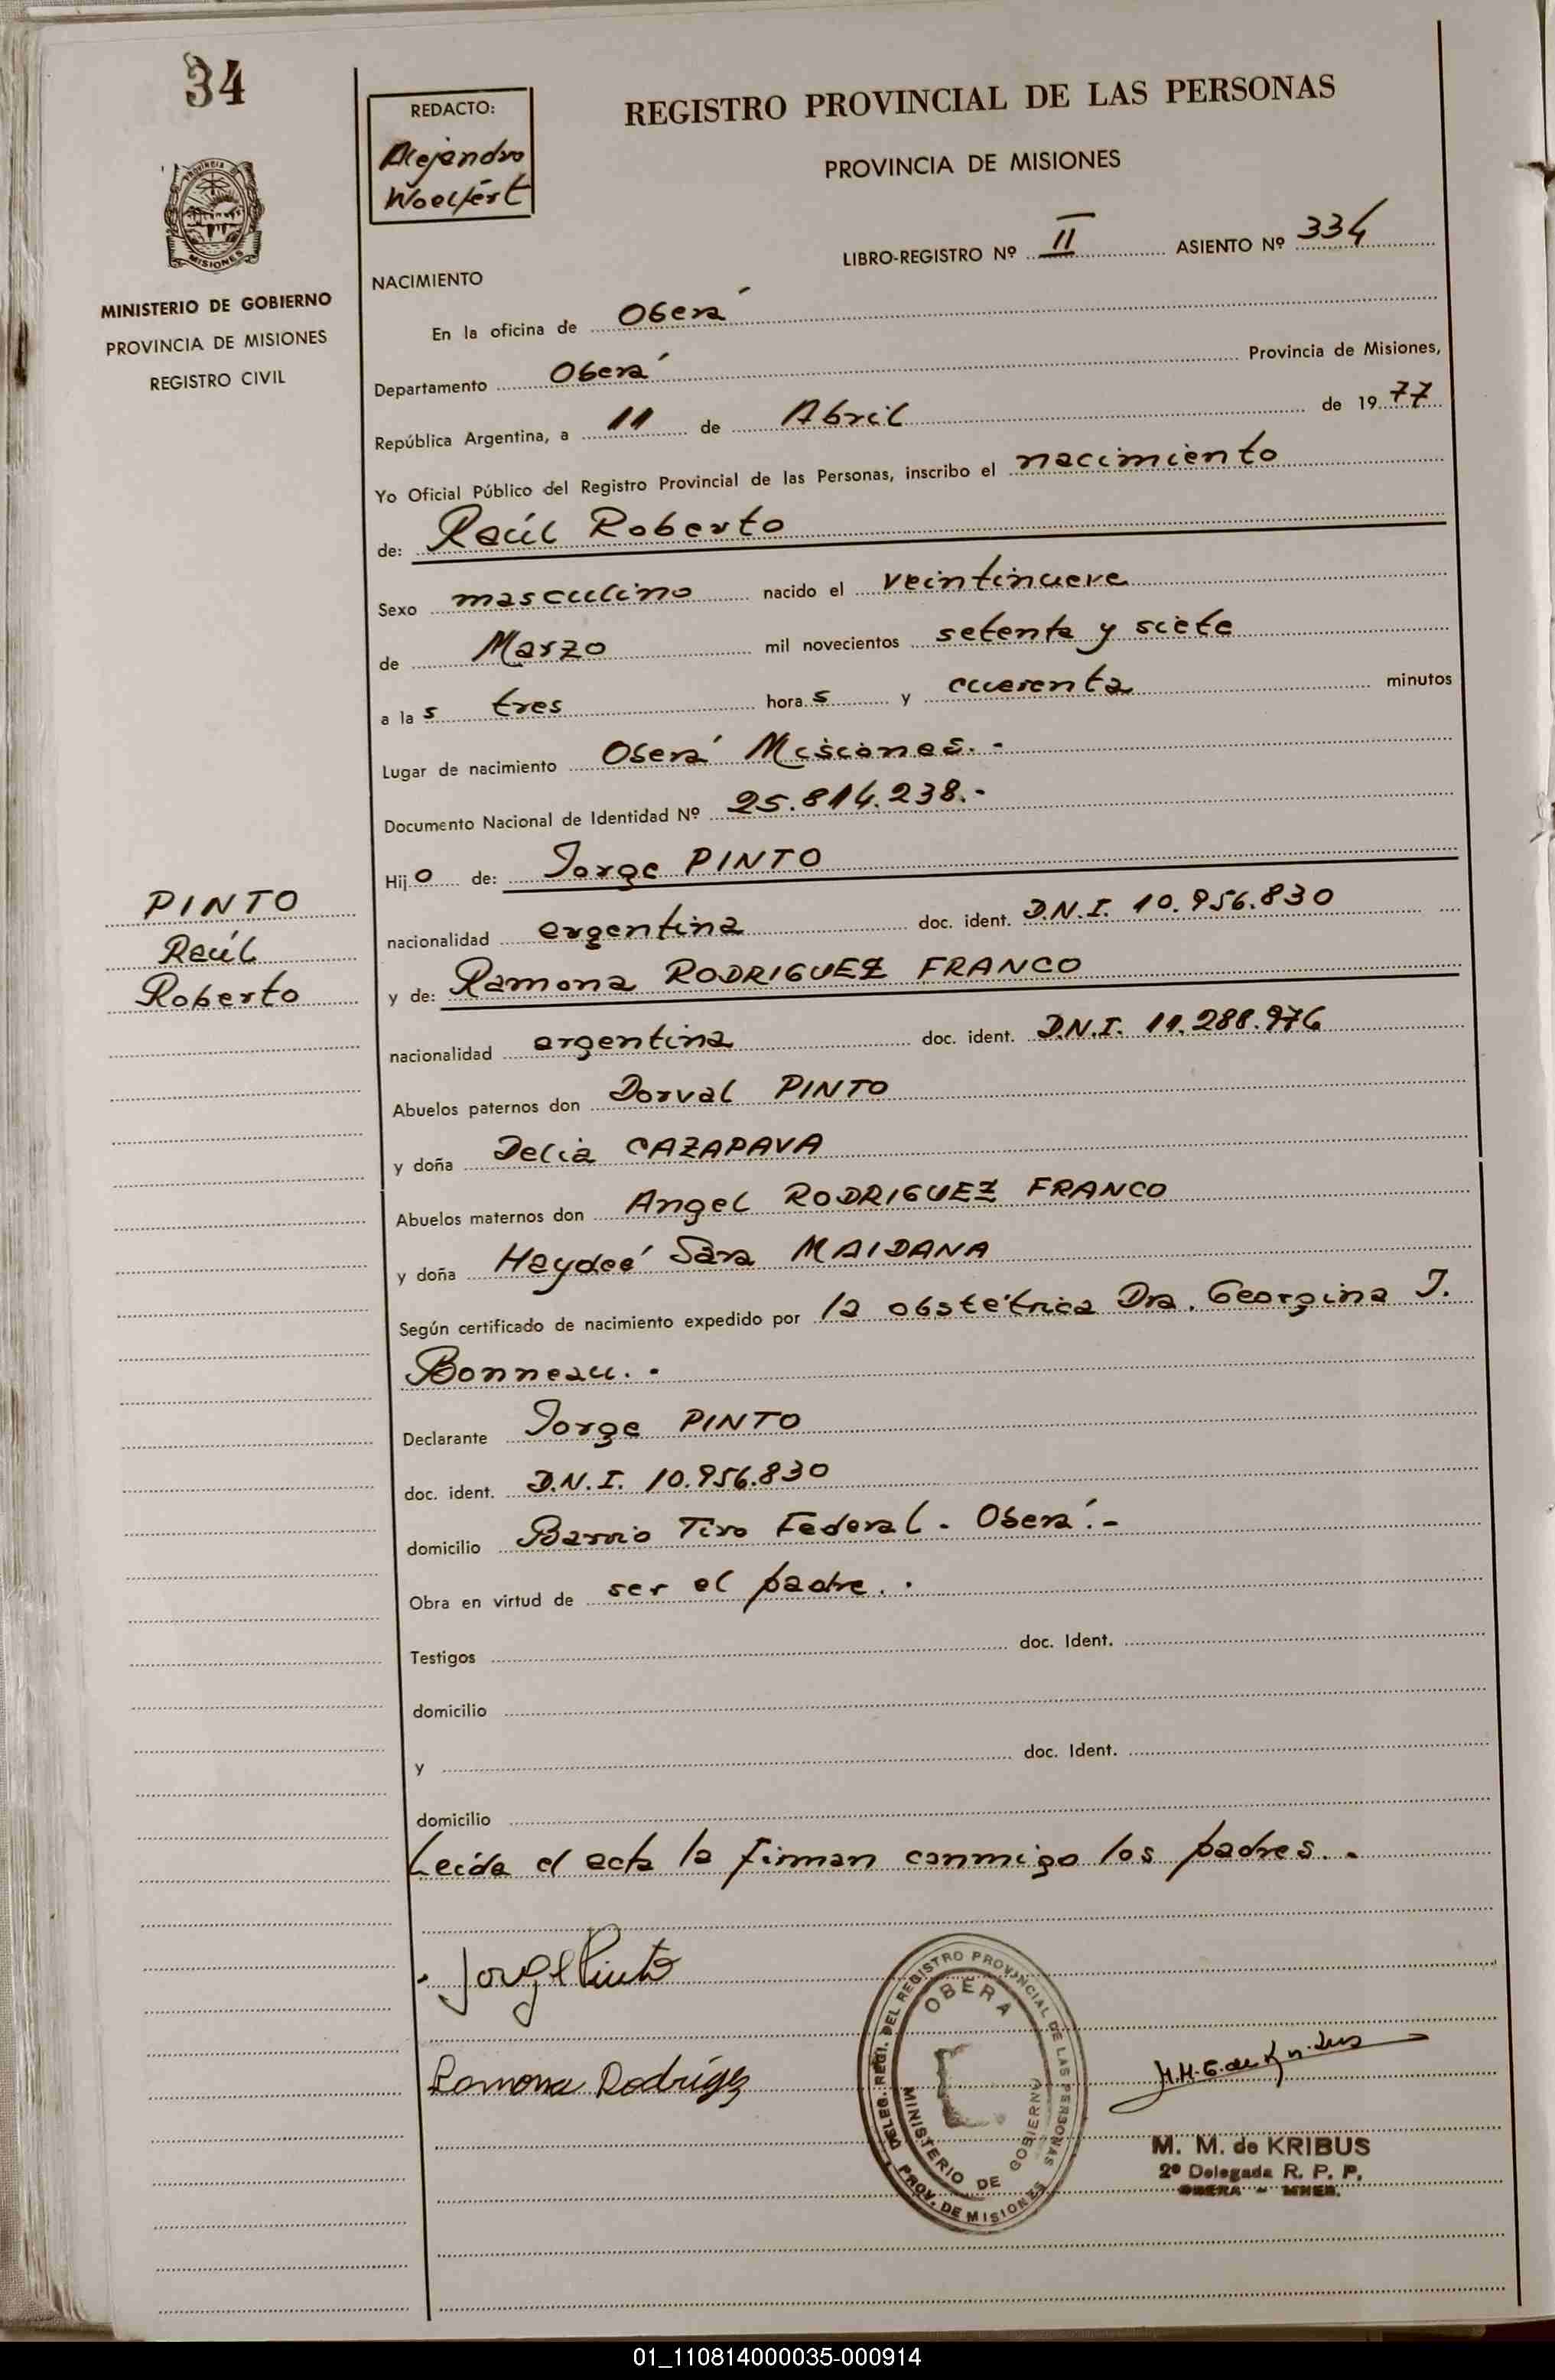 34
REDACTO:
Alejandro
Woelfert
REGISTRO PROVINCIAL DE LAS PERSONAS
PROVINCIA DE MISIONES
LIBRO-REGISTRO Nº II ASIENTO Nº 334
PROVINCIA
MISIONES
MINISTERIO DE GOBIERNO
PROVINCIA DE MISIONES
REGISTRO CIVIL
NACIMIENTO
En la oficina de Oberá
Departamento Oberá Provincia de Misiones,
República Argentina, a 11 de Abril de 1977
Yo Oficial Público del Registro Provincial de las Personas, inscribo el nacimiento
de: Raúl Roberto
Sexo masculino nacido el veintinueve
de Marzo mil novecientos setenta y siete
a las tres horas y cuarenta minutos
Lugar de nacimiento Oberá Misiones.-
Documento Nacional de Identidad Nº 25.814.238.-
Hijo de: Jorge PINTO
nacionalidad argentina doc. ident. D.N.I. 10.956.830
y de: Ramona RODRIGUEZ FRANCO
nacionalidad argentina doc. ident. D.N.I. 11.288.976
PINTO
Raúl
Roberto
Abuelos paternos don Dorval PINTO
y doña Delia CAZAPAVA
Abuelos maternos don Angel RODRIGUEZ FRANCO
y doña Haydeé Sara MAIDANA
Según certificado de nacimiento expedido por la obstétrica Dra. Georgina J.
Bonneau.-
Declarante Jorge PINTO
doc. ident. D.N.I. 10.956.830
domicilio Barrio Tiro Federal - Oberá.-
Obra en virtud de ser el padre.-
Testigos doc. Ident.
domicilio
y doc. Ident.
domicilio
Leída el acta la firman conmigo los padres.-
Jorge Pinto
Ramona Rodríguez
DELEG. REGI. DEL REGISTRO PROVINCIAL DE LAS PERSONAS
OBERA
MINISTERIO DE GOBIERNO
PROV. DE MISIONES
M. M. de KRIBUS
2º Delegada R. P. P.
OBERA - MNES.
01_110814000035-000914